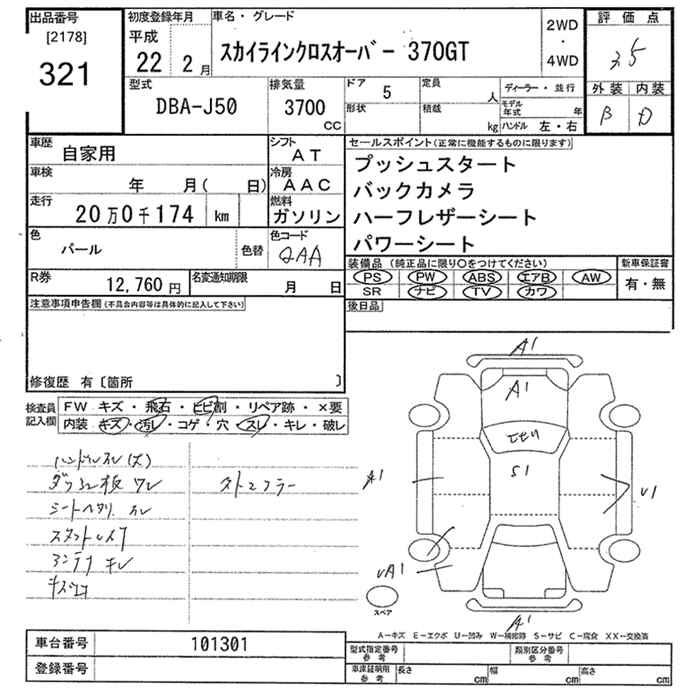 出品番号
[2178]
321
初度登録年月
平成
22 2 月
車名・グレード
スカイラインクロスオーバー 370GT
2WD
・
4WD
評価点
3.5
外装 内装
B D
型式
DBA-J50
排気量
3700
CC
ドア
5
定員
人
形状
積載
kg
ディーラー・並行
モデル年式 年
ハンドル 左・右
車歴
自家用
シフト
AT
車検
年 月( 日)
冷房
AAC
走行
20万0千174 km
燃料
ガソリン
色
パール
色替
色コード
QAA
R券
12,760円
名変通知期限
月 日
セールスポイント(正常に機能するものに限ります)
プッシュスタート
バックカメラ
ハーフレザーシート
パワーシート
装備品(純正品に限り○をつけてください)
新車保証書
PS PW ABS エアB AW
有・無
SR ナビ TV カワ
後日品
注意事項申告欄(不具合内容等は具体的に記入して下さい)
修復歴 有〔箇所 〕
検査員
記入欄
FW キズ・飛石・ヒビ割・リペア跡・×要
内装 キズ・汚レ・コゲ・穴・スレ・キレ・破レ
ハンドルスレ(大)
ダッシュ板 ワレ
A1
A1
ヒビワレ
S1
A1
U1
UA1
A1
スペア
A-キズ E-エクボ U-凹み W-補修跡 S-サビ C-腐食 XX-交換済
車台番号
101301
登録番号
型式指定番号
参考
類別区分番号
参考
車庫証明用
参考
長さ cm
幅 cm
高さ cm